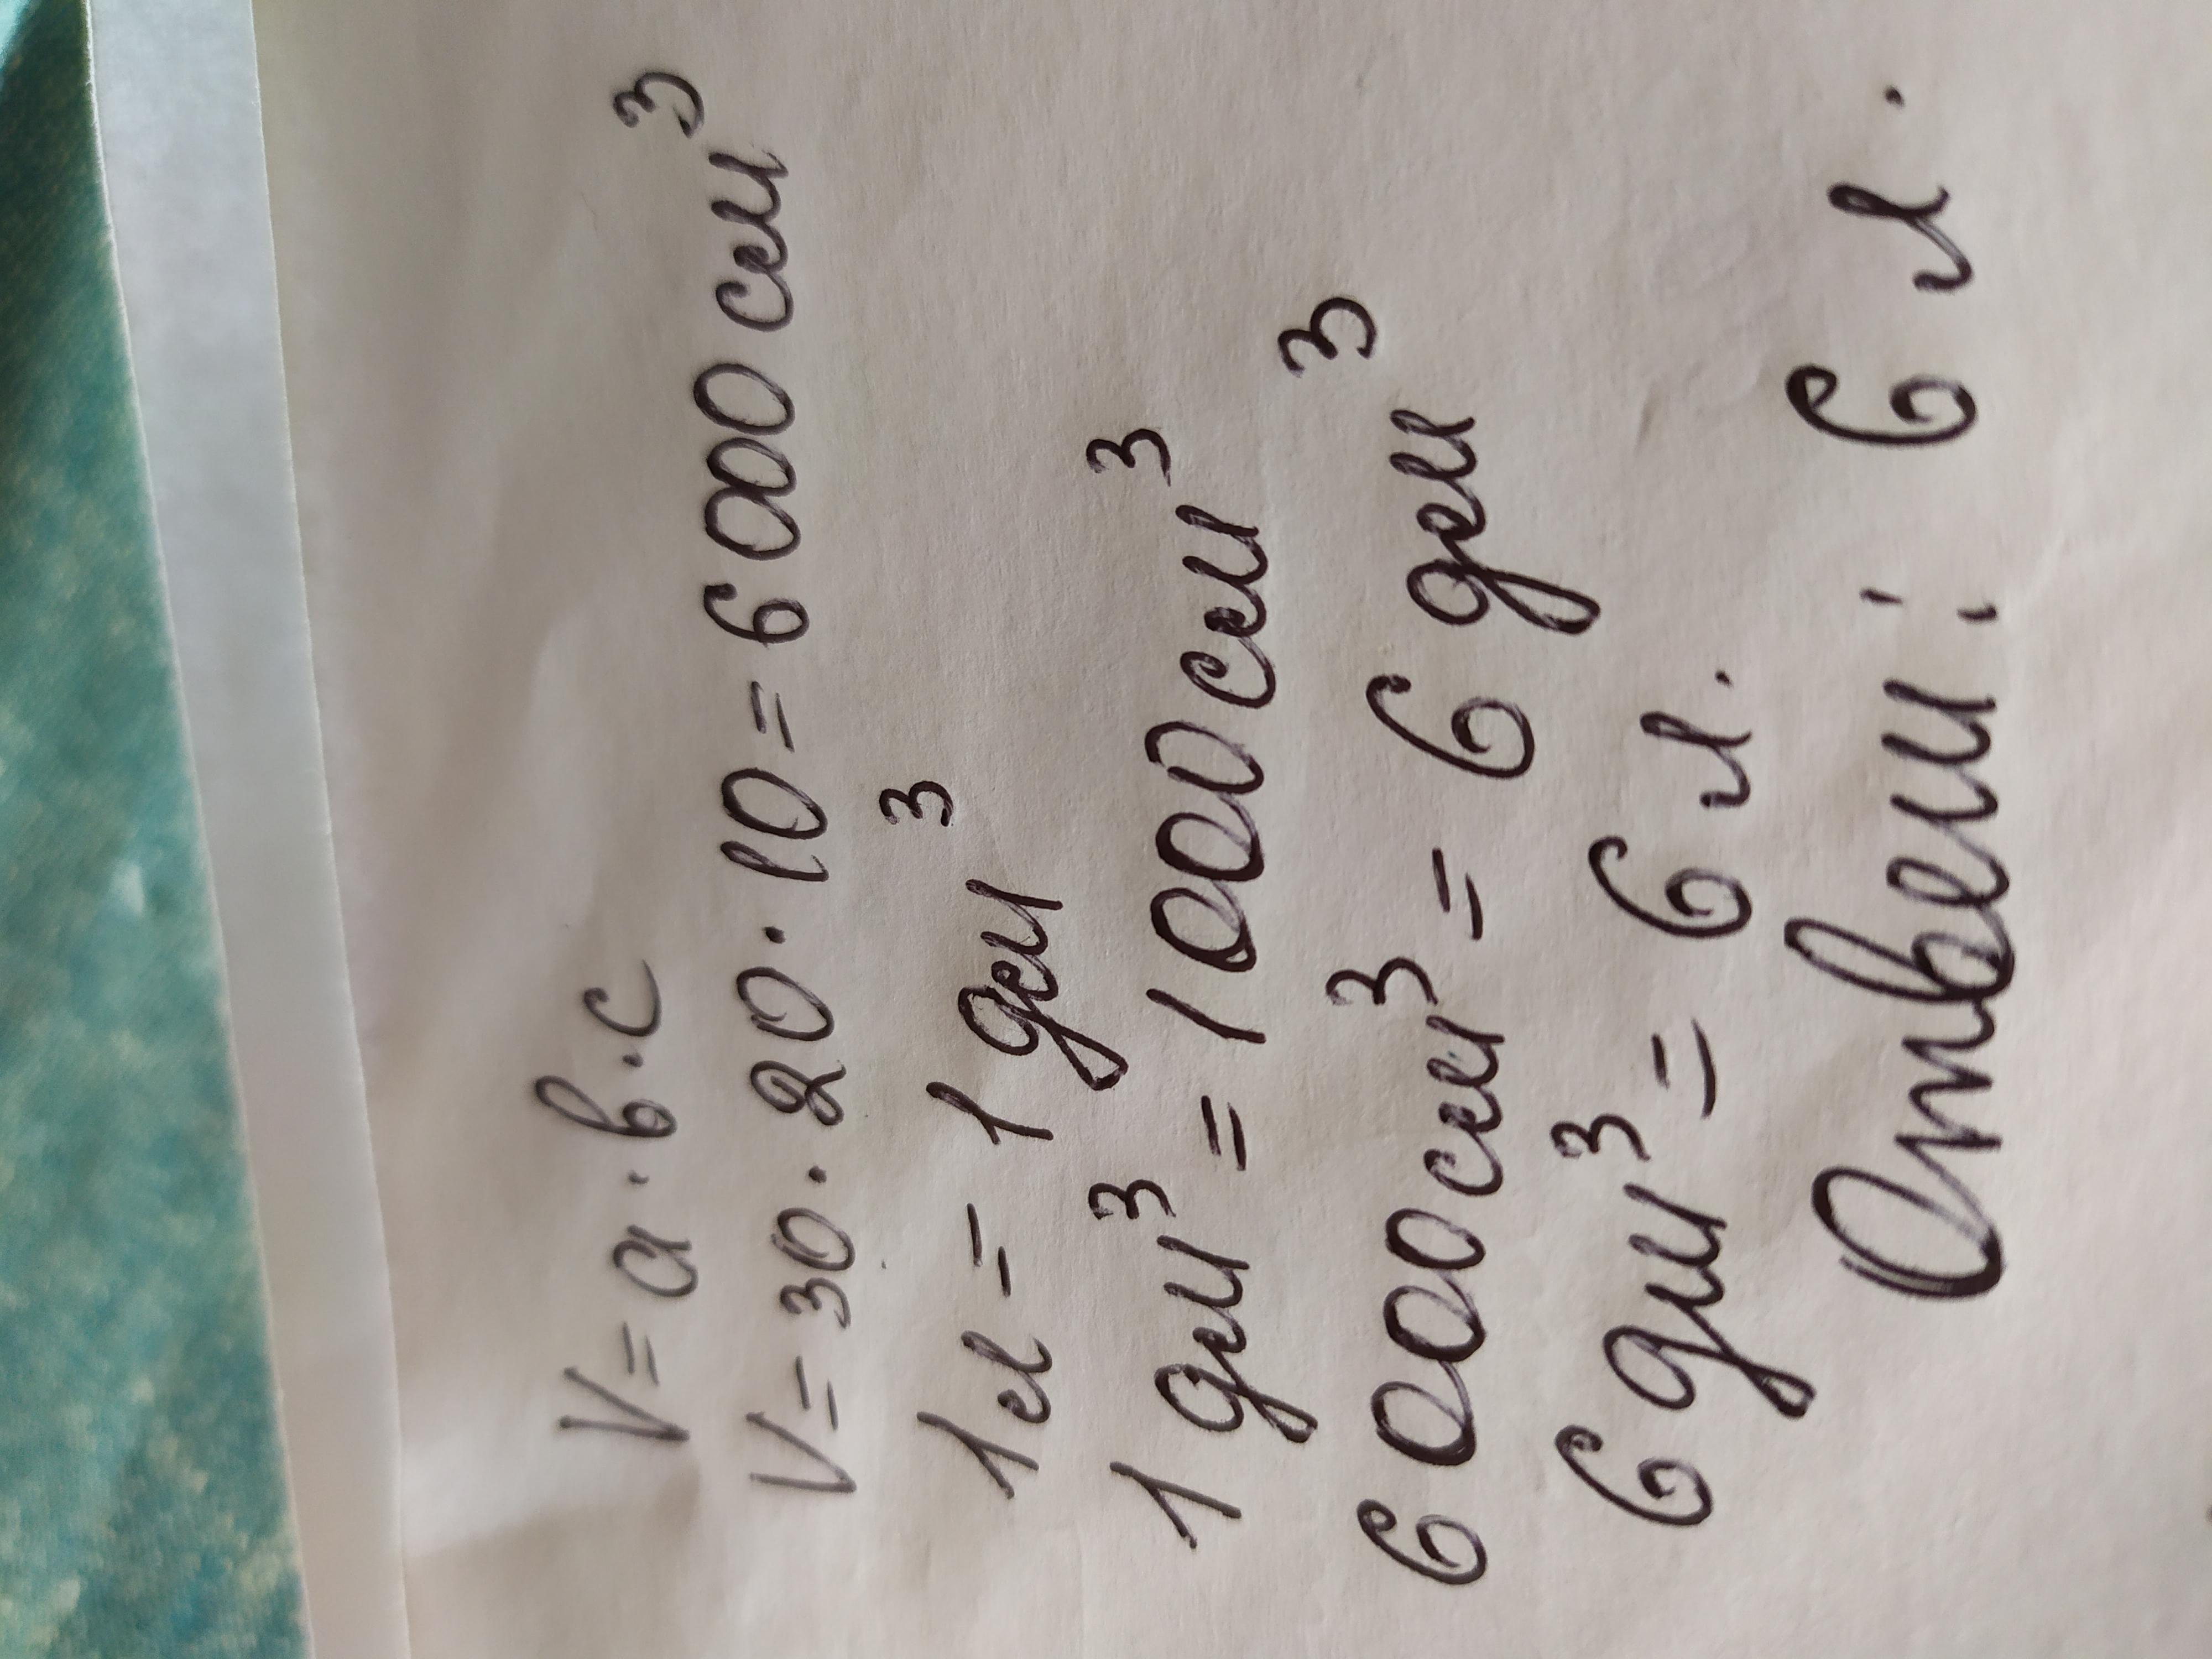 V = а · в · с
V = 30 · 20 · 10 = 6000 см³
1л = 1 дм³
1 дм³ = 1000 см³
6000 см³ = 6 дм³
6 дм³ = 6 л.
Ответ: 6 л.